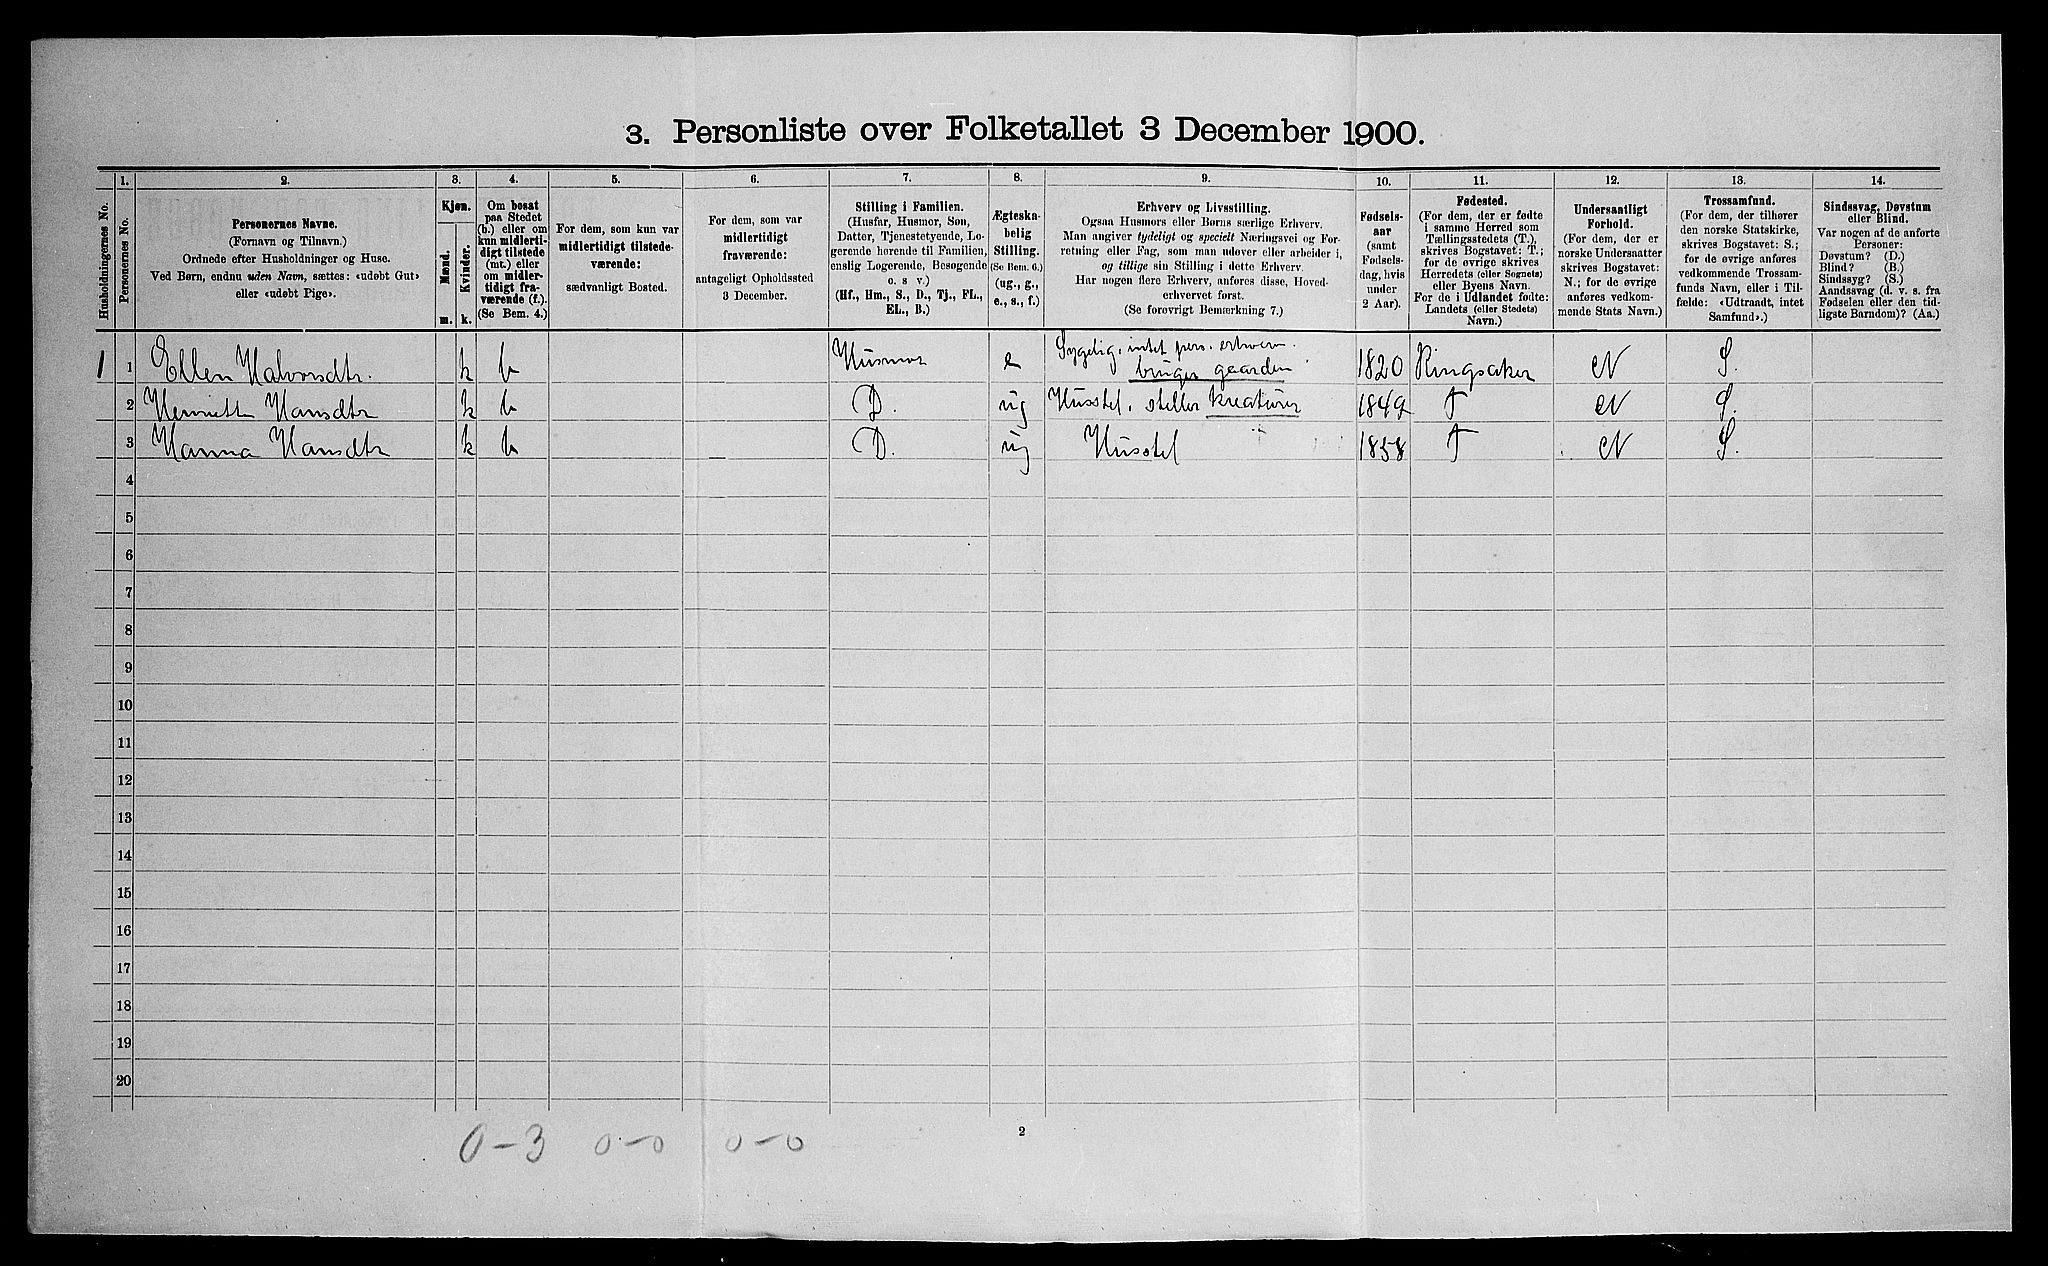 3. Personliste over Folketallet 3 December 1900.
Husholdningernes No.
1.
Personernes No.
2.
Personernes Navne.
(Fornavn og Tilnavn.)
Ordnede efter Husholdninger og Huse.
Ved Børn, endnu uden Navn, sættes: «udøbt Gut»
eller «udøbt Pige».
3.
Kjøn.
Mænd.
Kvinder.
m. k.
4.
Om bosat
paa Stedet
(b.) eller om
kun midlerti-
digt tilstede
(mt.) eller
om midler-
tidigt fra-
værende (f.).
(Se Bem. 4.)
5.
For dem, som kun var
midlertidigt tilstede-
værende:
sædvanligt Bosted.
6.
For dem, som var
midlertidigt
fraværende:
antageligt Opholdssted
3 December.
7.
Stilling i Familien.
(Husfar, Husmor, Søn,
Datter, Tjenestetyende, Lo-
gerende hørende til Familien,
enslig Logerende, Besøgende
o. s v.)
(Hf., Hm., S., D., Tj., FL.,
EL., B.)
8.
Ægteska-
belig
Stilling.
(Se Bem. 6.)
(ug., g.,
e., s., f.)
9.
Erhverv og Livsstilling.
Ogsaa Husmors eller Børns særlige Erhverv.
Man angiver tydeligt og specielt Næringsvei og For-
retning eller Fag, som man udøver eller arbeider i,
og tillige sin Stilling i dette Erhverv.
Har nogen flere Erhverv, anføres disse, Hoved-
erhvervet først.
(Se forøvrigt Bemærkning 7.)
10.
Fødsels-
aar
(samt
Fødsels-
dag, hvis
under
2 Aar).
11.
Fødested.
(For dem, der er fødte
i samme Herred som
Tællingsstedets (T.),
skrives Bogstavet: T.;
for de øvrige skrives
Herredets (eller Sognets)
eller Byens Navn.
For de i Udlandet fødte:
Landets (eller Stedets)
Navn.)
12.
Undersaatligt
Forhold.
(For dem, der er
norske Undersaatter
skrives Bogstavet:
N.; for de øvrige
anføres vedkom-
mende Stats Navn.)
13.
Trossamfund.
(For dem, der tilhører
den norske Statskirke,
skrives Bogstavet: S.;
for de øvrige anføres
vedkommende Trossam-
funds Navn, eller i Til-
fælde: «Udtraadt, intet
Samfund».)
14.
Sindssvag, Døvstum
eller Blind.
Var nogen af de anførte
Personer:
Døvstum? (D.)
Blind? (B.)
Sindssyg? (S.)
Aandssvag (d. v. s. fra
Fødselen eller den tid-
ligste Barndom)? (Aa.)
1 1 Ellen Halvorsdtr. k b Husmor e Sygelig, intet pers. erhverv. bruger gaarden 1820 Ringsaker N S.
2 Henriette Hansdtr k b D. ug Husstel, steller kreaturer 1849 T N S.
3 Hanna Hansdtr k b D. ug Husstel 1858 T N S.
4
5
6
7
8
9
10
11
12
13
14
15
16
17
18
19
20
2
0-3 0-0 0-0